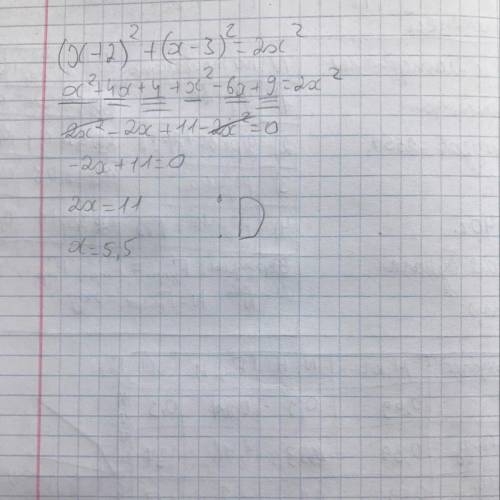 (x+2)² + (x-3)² = 2x²
x² + 4x + 4 + x² - 6x + 9 = 2x²
2x² - 2x + 11 - 2x² = 0
-2x + 11 = 0
2x = 11
x = 5,5
:D